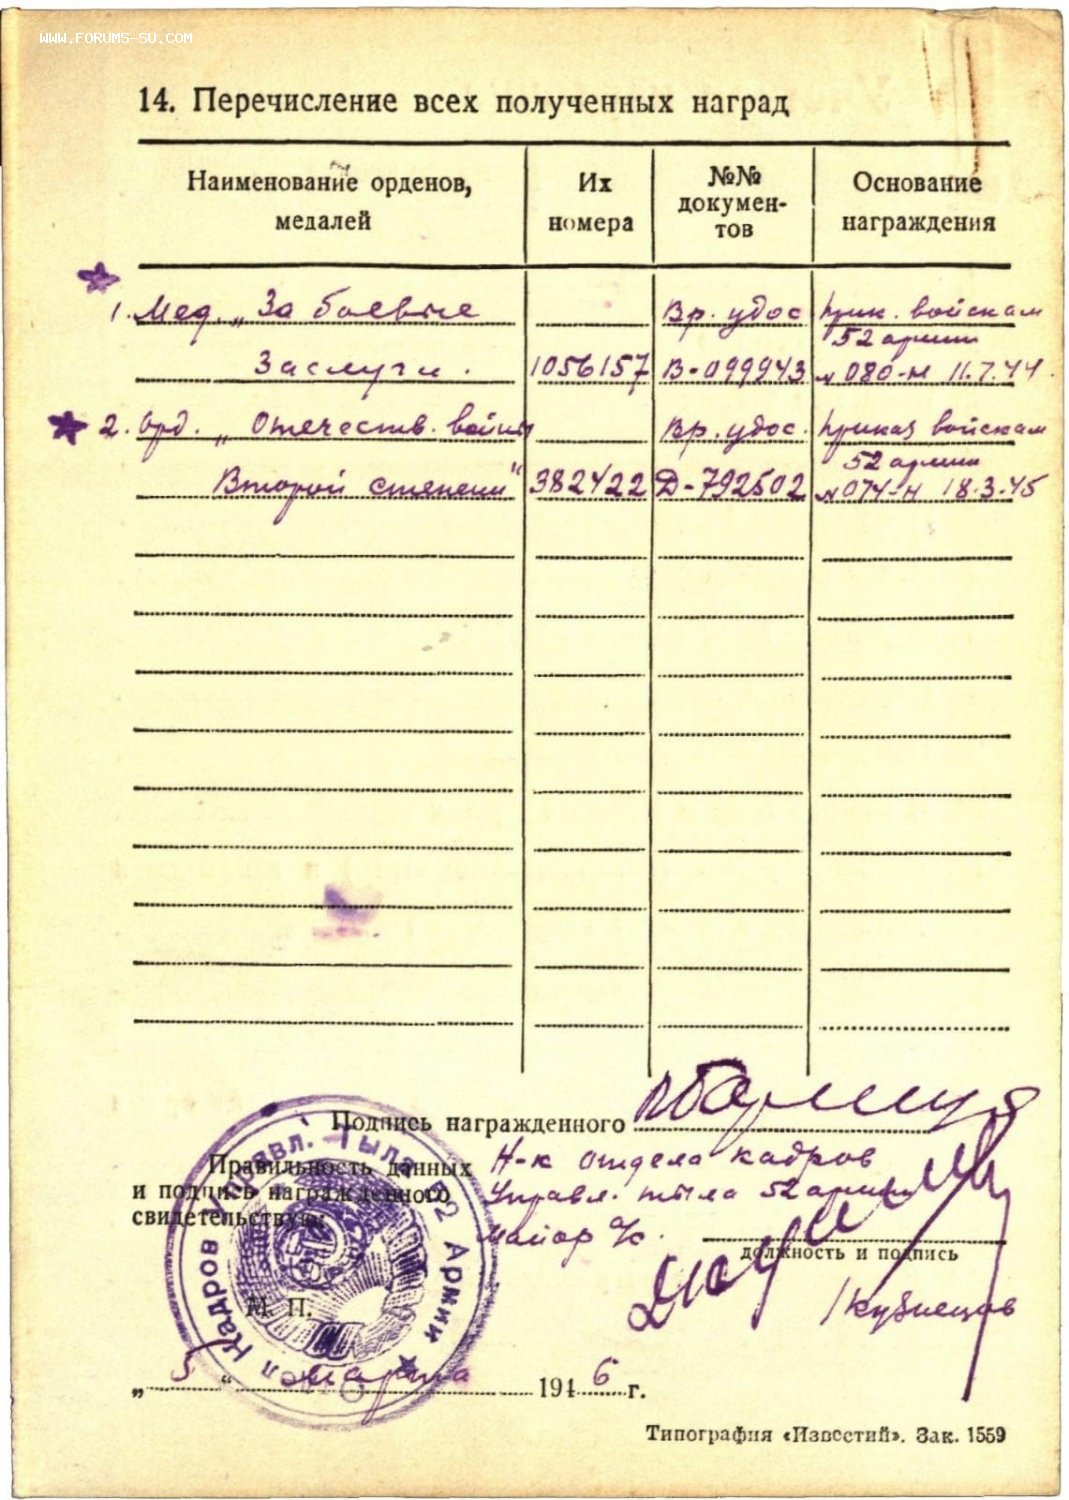 WWW.FORUMS-SU.COM
14. Перечисление всех полученных наград
Наименование орденов, медалей
Их номера
№№ докумен-тов
Основание награждения
1. Мед. „За боевые
Вр. удос
Прик. войскам
52 армии
Заслуги.
1056157
В-099943
№ 080-н 11.7.44.
2. Орд. „Отечеств. войны
Вр. удос.
Приказ войскам
52 армии
Второй степени"
382422
Д-792502
№ 074-н 18.3.45
Подпись награжденного
Правильность данных
и подпись награжденного
свидетельствую:
Н-к отдела кадров
Управл. тыла 52 армии
майор а/с.
должность и подпись
/Кузнецов
М. П.
Отдел Кадров Управл. Тыла 52 Армии
„ 5 “ марта 1946 г.
Типография «Известий». Зак. 1559